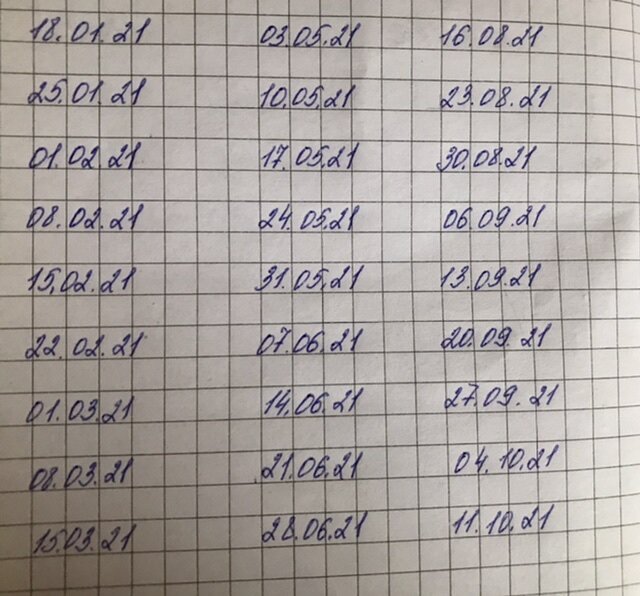 18.01.21 03.05.21 16.08.21
25.01.21 10.05.21 23.08.21
01.02.21 17.05.21 30.08.21
08.02.21 24.05.21 06.09.21
15.02.21 31.05.21 13.09.21
22.02.21 07.06.21 20.09.21
01.03.21 14.06.21 27.09.21
08.03.21 21.06.21 04.10.21
15.03.21 28.06.21 11.10.21